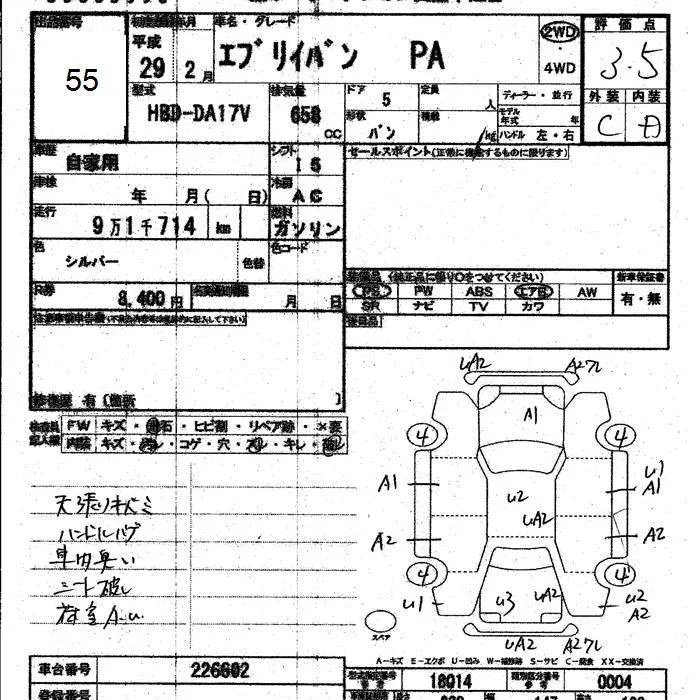 出品番号
55
初度登録年月
平成
29 2月
車名・グレード
エブリイバン PA
2WD
・
4WD
評価点
3.5
外装 内装
C D
型式
HBD-DA17V
排気量
658
CC
ドア
5
形状
バン
定員
人
積載
kg
ディーラー・並行
モデル年式 年
ハンドル 左・右
車歴
自家用
シフト
I 5
車検
年 月( 日)
冷房
AC
走行
9万1千714 km
燃料
ガソリン
色
シルバー
色替
色コード
R券
8,400円
月 日
セールスポイント(正常に機能するものに限ります)
装備品(純正品に限り○をつけてください)
新車保証書
PS PW ABS エアB AW
SR ナビ TV カワ
有・無
後日品
修復歴 有(箇所 )
FW キズ・飛石・ヒビ割・リペア跡・×要
内装 キズ・汚レ・コゲ・穴・スレ・キレ
天張りキバミ
ハンドルハゲ
車内臭い
シート破レ
荷室A.u.
uA2 A2
A1
4 4
A1 u2 u1 A1
uA2
A2 A2
4 4
u1 u3 uA2 u2 A2
スペア
uA2 A2
A-キズ E-エクボ U-凹み W-補修跡 S-サビ C-腐食 XX-交換済
車台番号
226602
型式指定番号
18014
類別区分番号
0004
登録番号